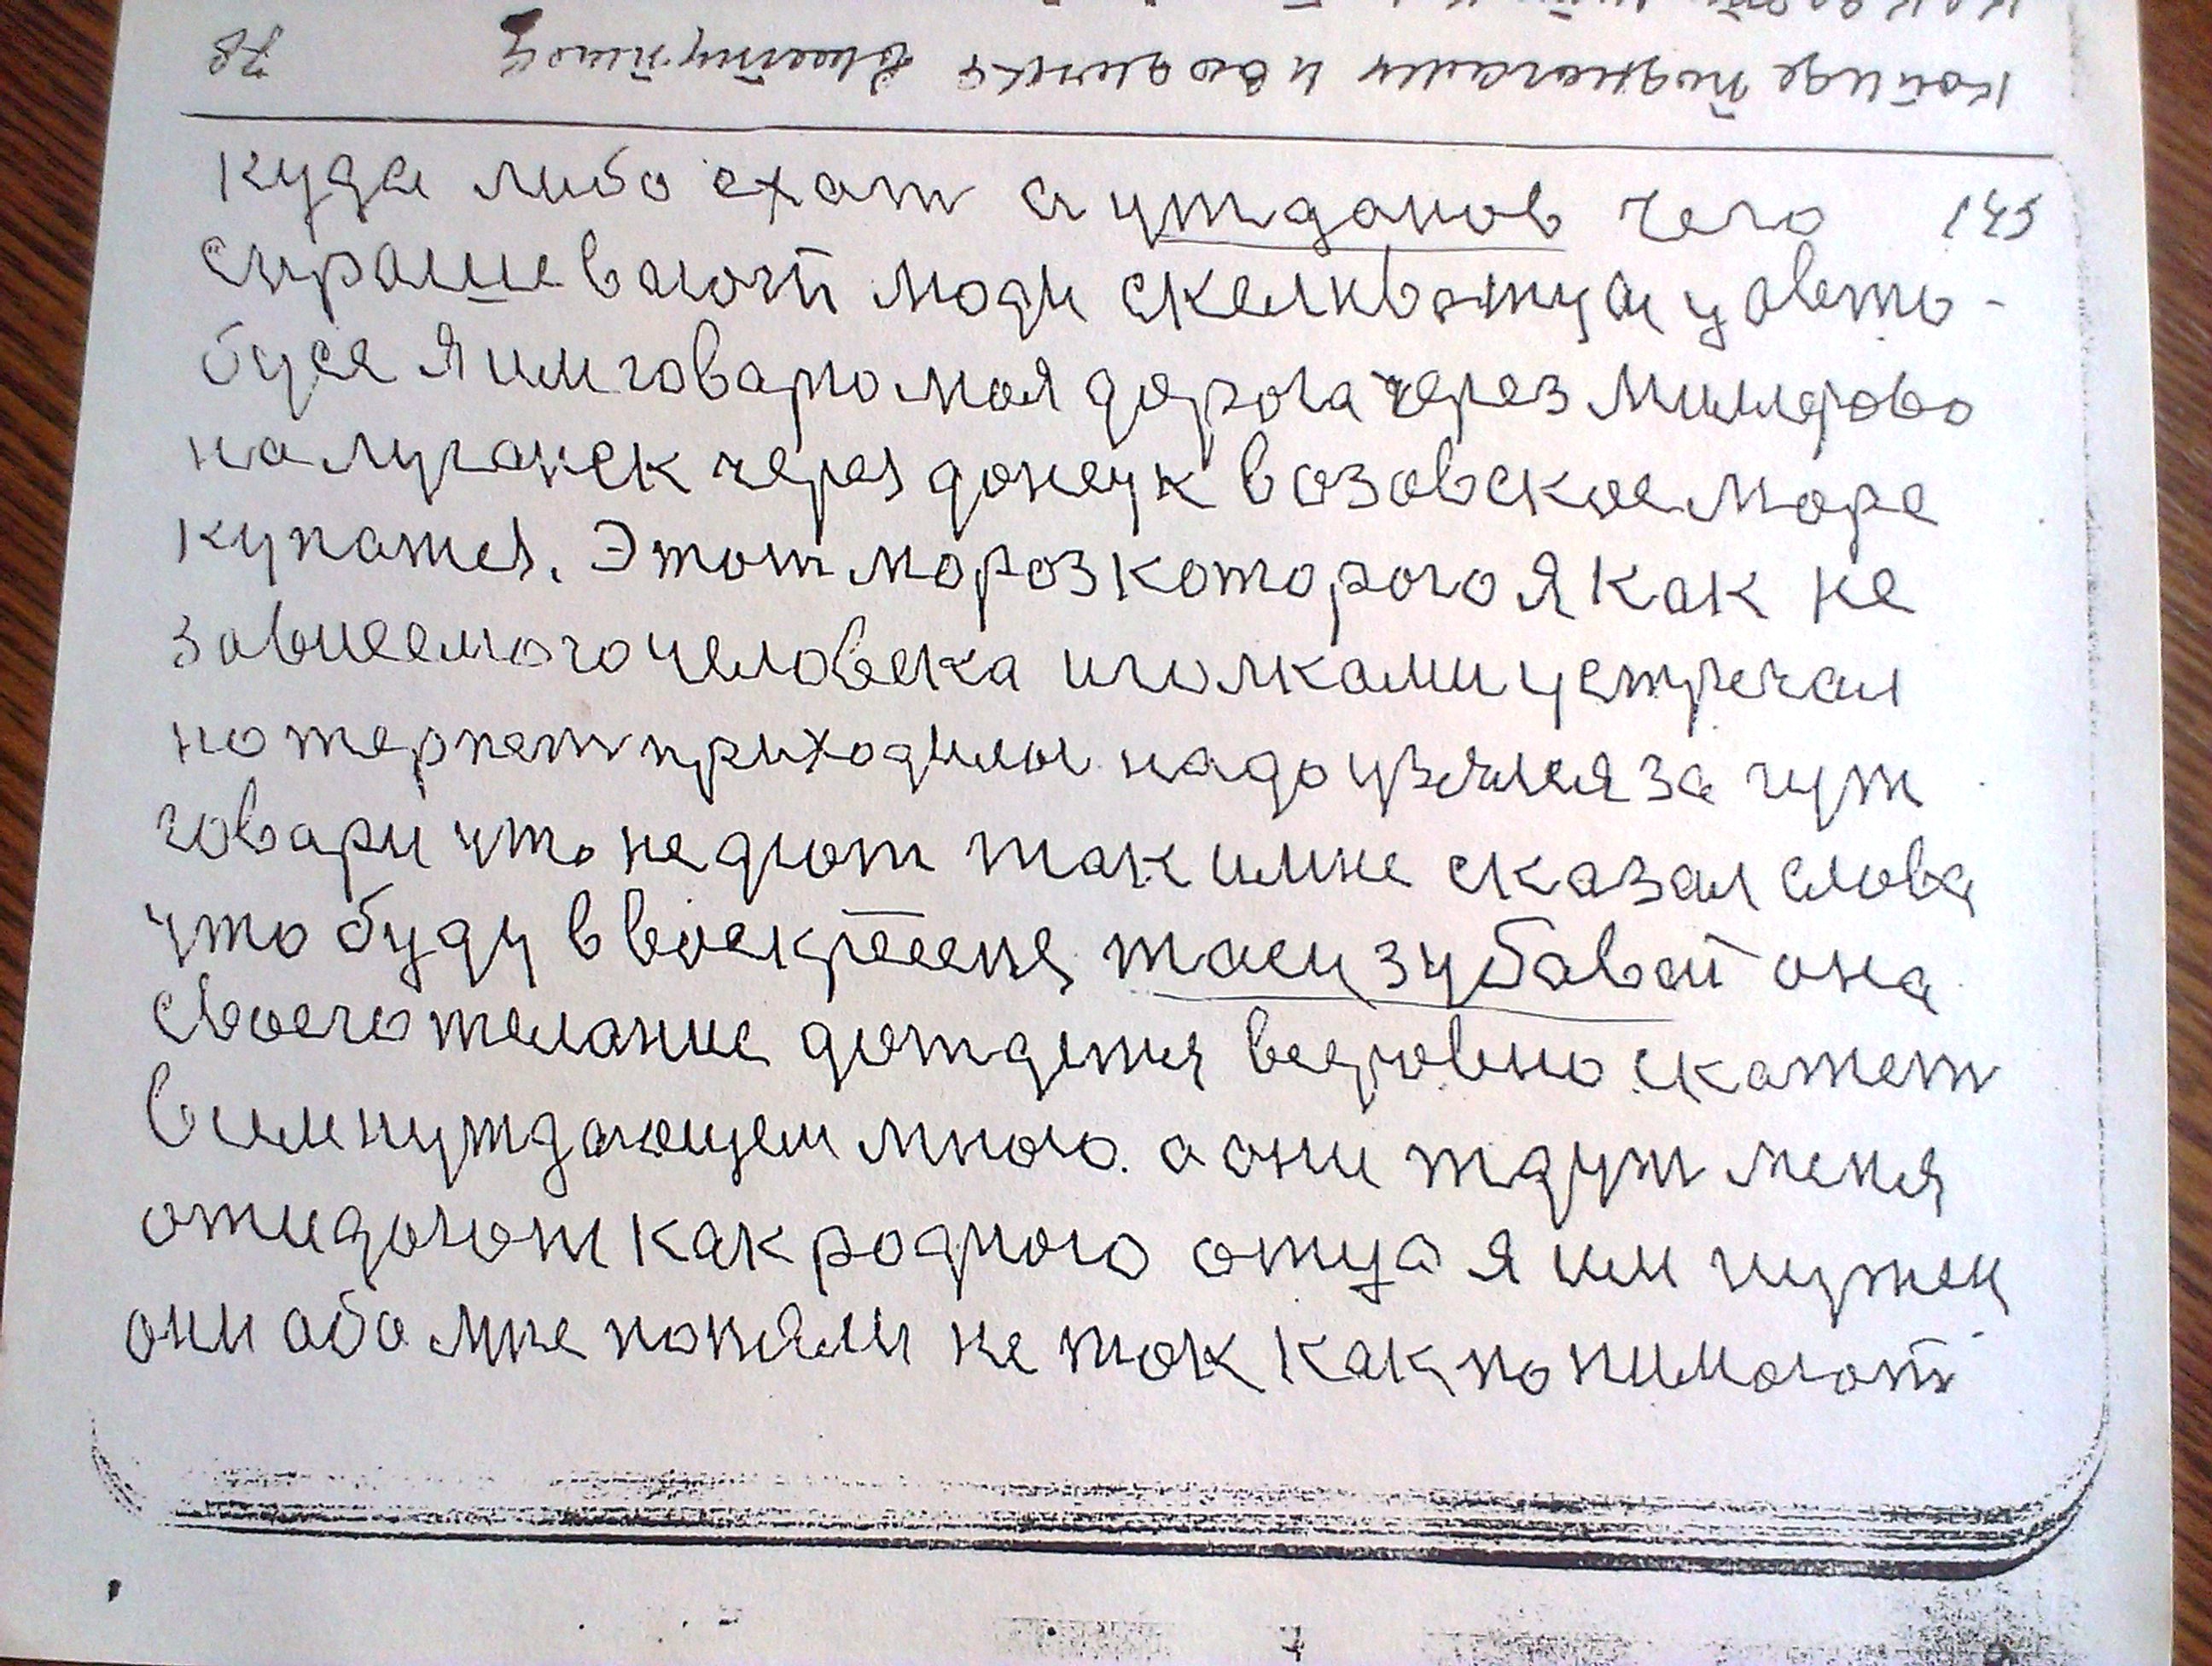 куда либо ехат а уждонов чего 145
спрашевают люди скеливатуа у авто-
буса я им говарю моя дорога через миллерово
на луганск через донецк в азавское море
купатся. Этот мороз которого я как не
зависемого человека иголками устречал
но терпет приходилос надо узялся за гуж
говари что не дюж так и мне сказал слова
что буду в воскресене таси зубавай она
своего желание дождется всеровно скажет
всим нуждающем много. а они ждут меня
ожидают как родного отца я им нужен
они обо мне поняли не так как понимают